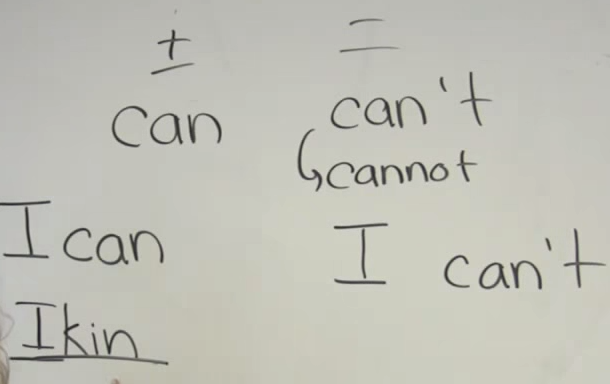 + –
can can't
cannot
I can I can't
Ikin